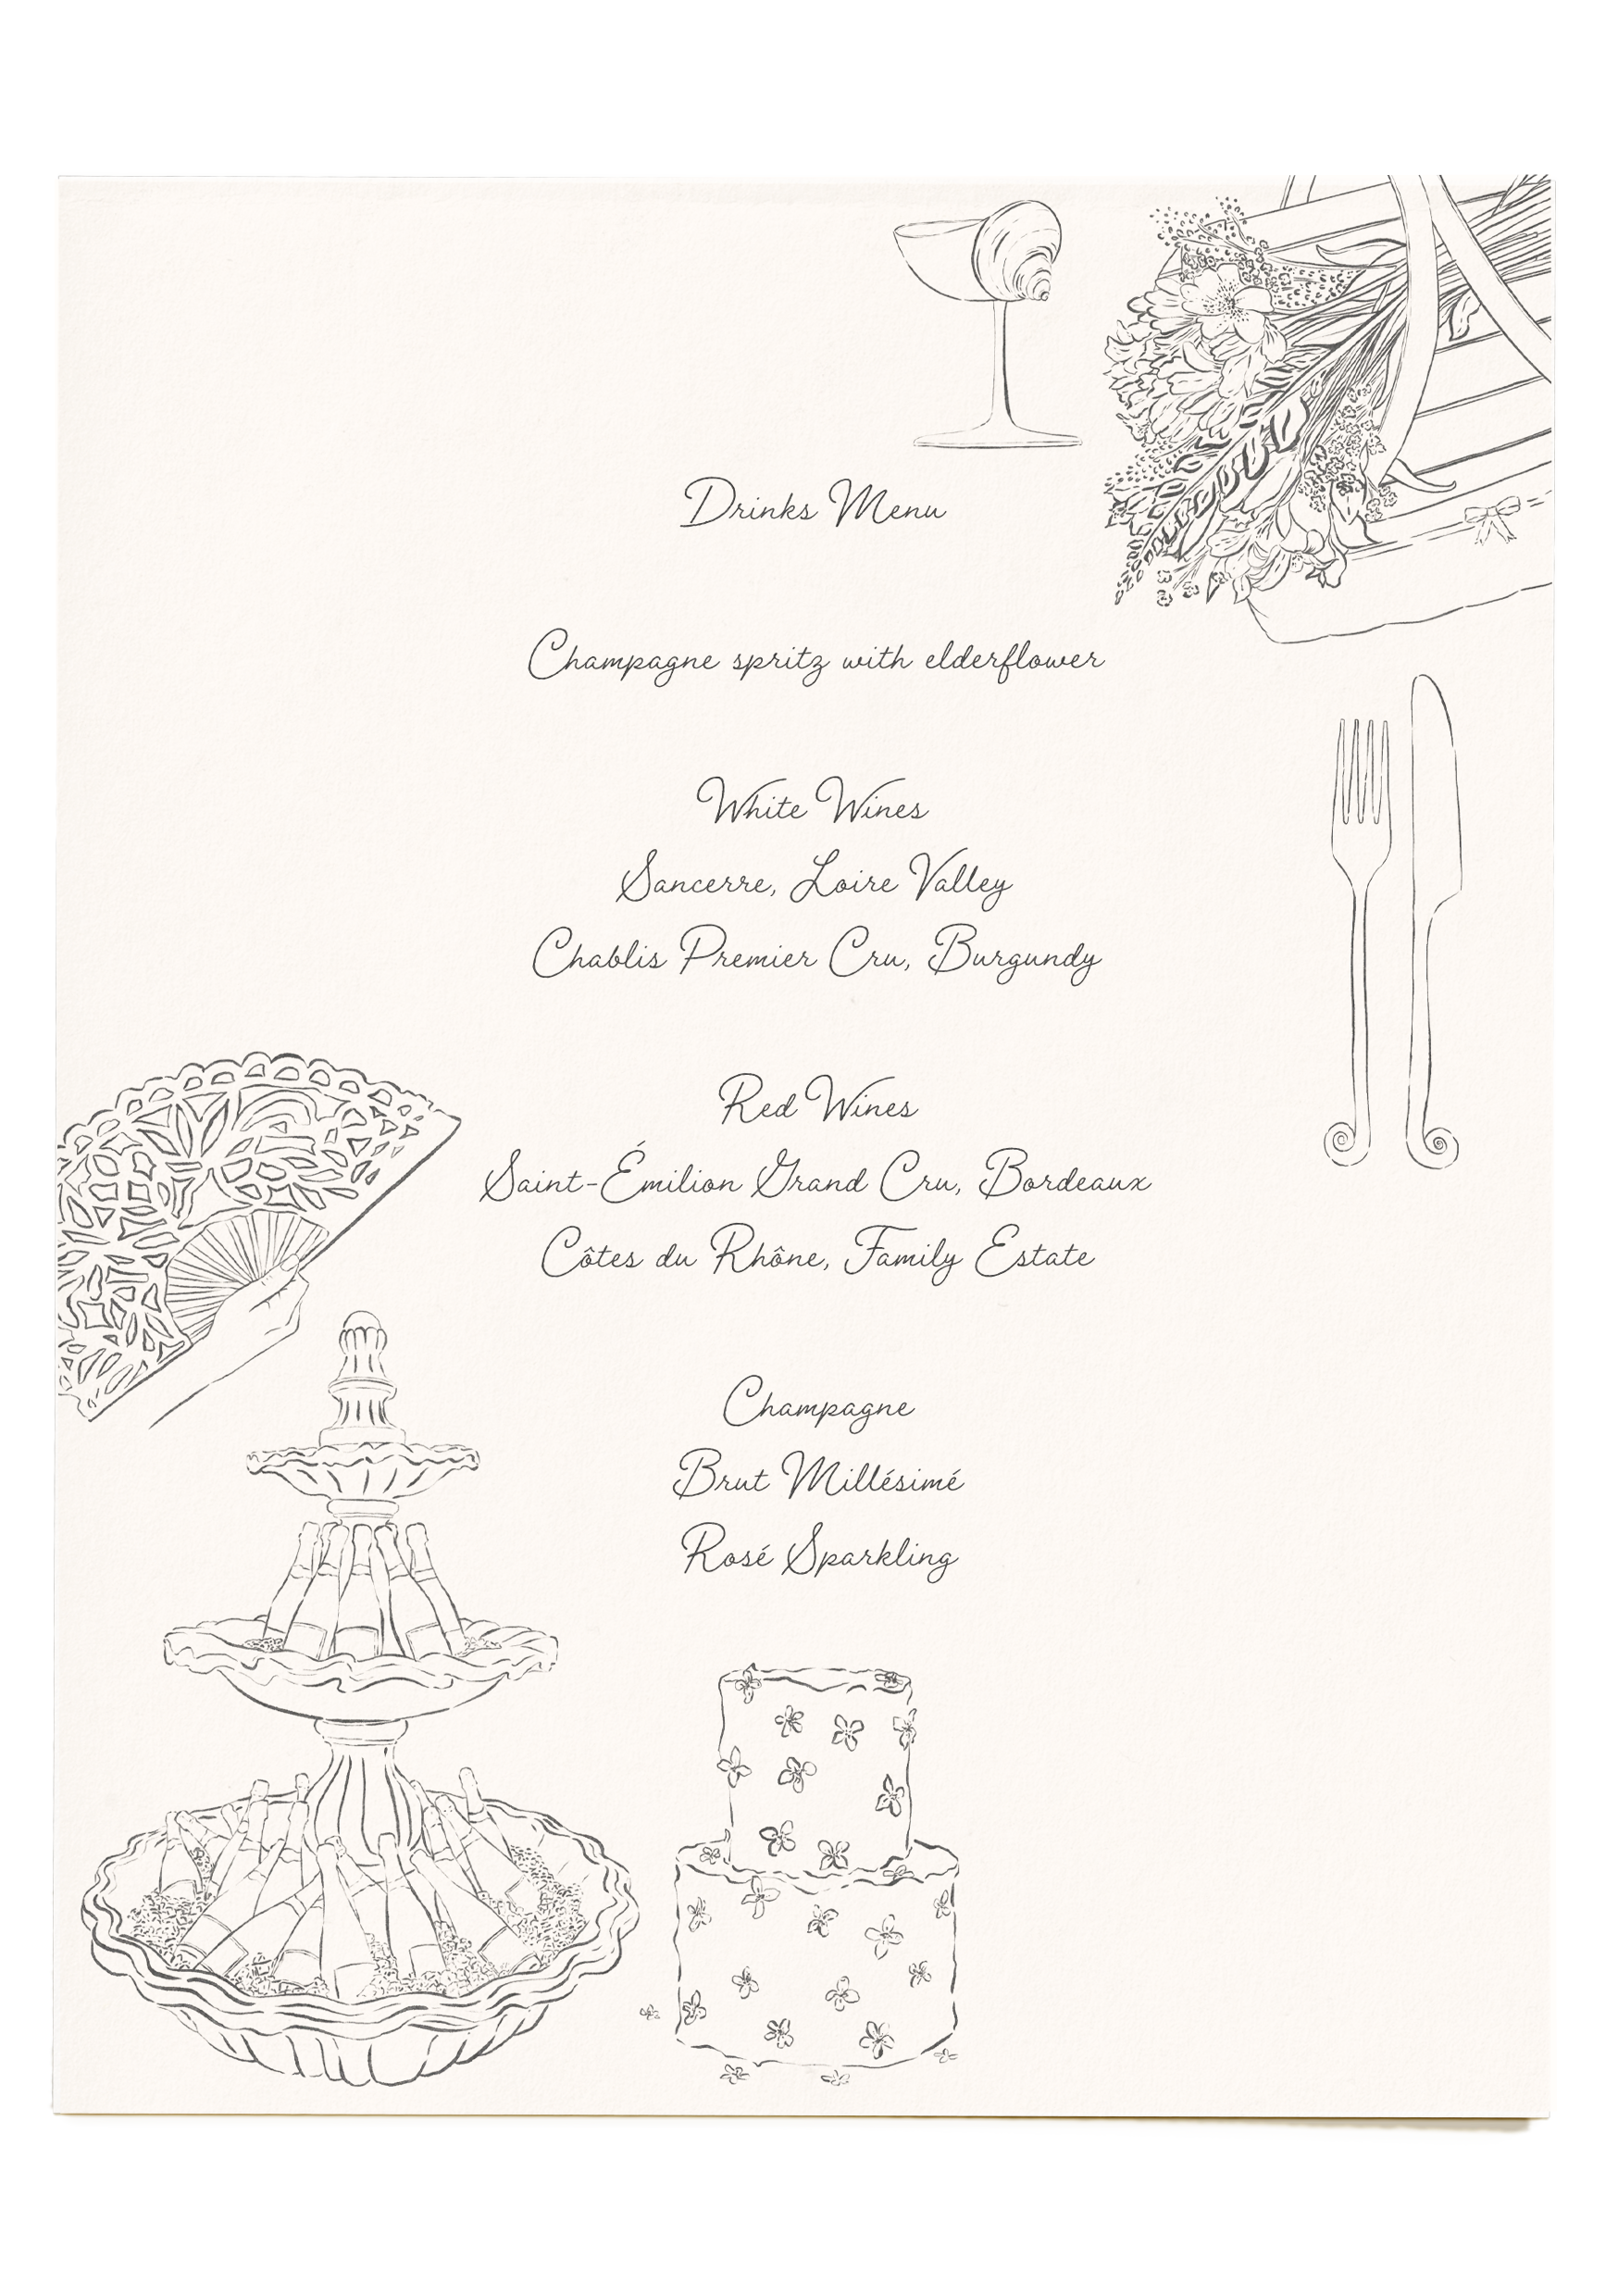 Drinks Menu
Champagne spritz with elderflower
White Wines
Sancerre, Loire Valley
Chablis Premier Cru, Burgundy
Red Wines
Saint-Émilion Grand Cru, Bordeaux
Côtes du Rhône, Family Estate
Champagne
Brut Millésimé
Rosé Sparkling